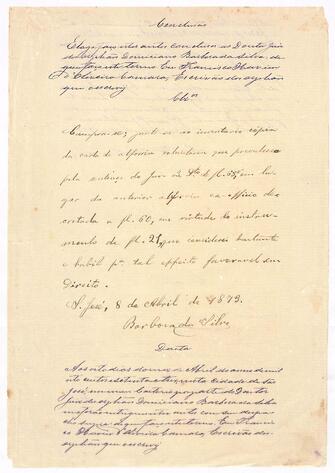 Conclusão
E logo faço estes autos conclusos ao Doutor Juiz
de Orphãos Domiciano Barbosa da Silva, do
que faço este termo. Eu Francisco Xavier
d'Oliveira Camara, Escrivão de orphãos
que escrevy
Clsos
Cumpra-se; junte-se ao inventario copia
da carta de alforria
pela de fl. 65, em lu-
gar da anterior alforria ex-officio de-
cretada a fl. 60, em virtude do instru-
mento de fl. 21, que considero bastante
e habil pa. tal effeito favoravel em
Direito.
S. José, 8 de Abril de 1879.
Barbosa da Silva
Data
Aos oito dias do mez de Abril do anno de mil
oito centos e setenta e nove, nesta cidade de São
José, em meu cartorio por parte do Doutor
Juiz de orphãos Domiciano Barbosa da Silva
me forão entregues estes autos com seu despa-
cho supra, do que faço este termo. Eu Francis-
co Xavier d'Oliveira Camara, Escrivão de
orphãos que escrevy